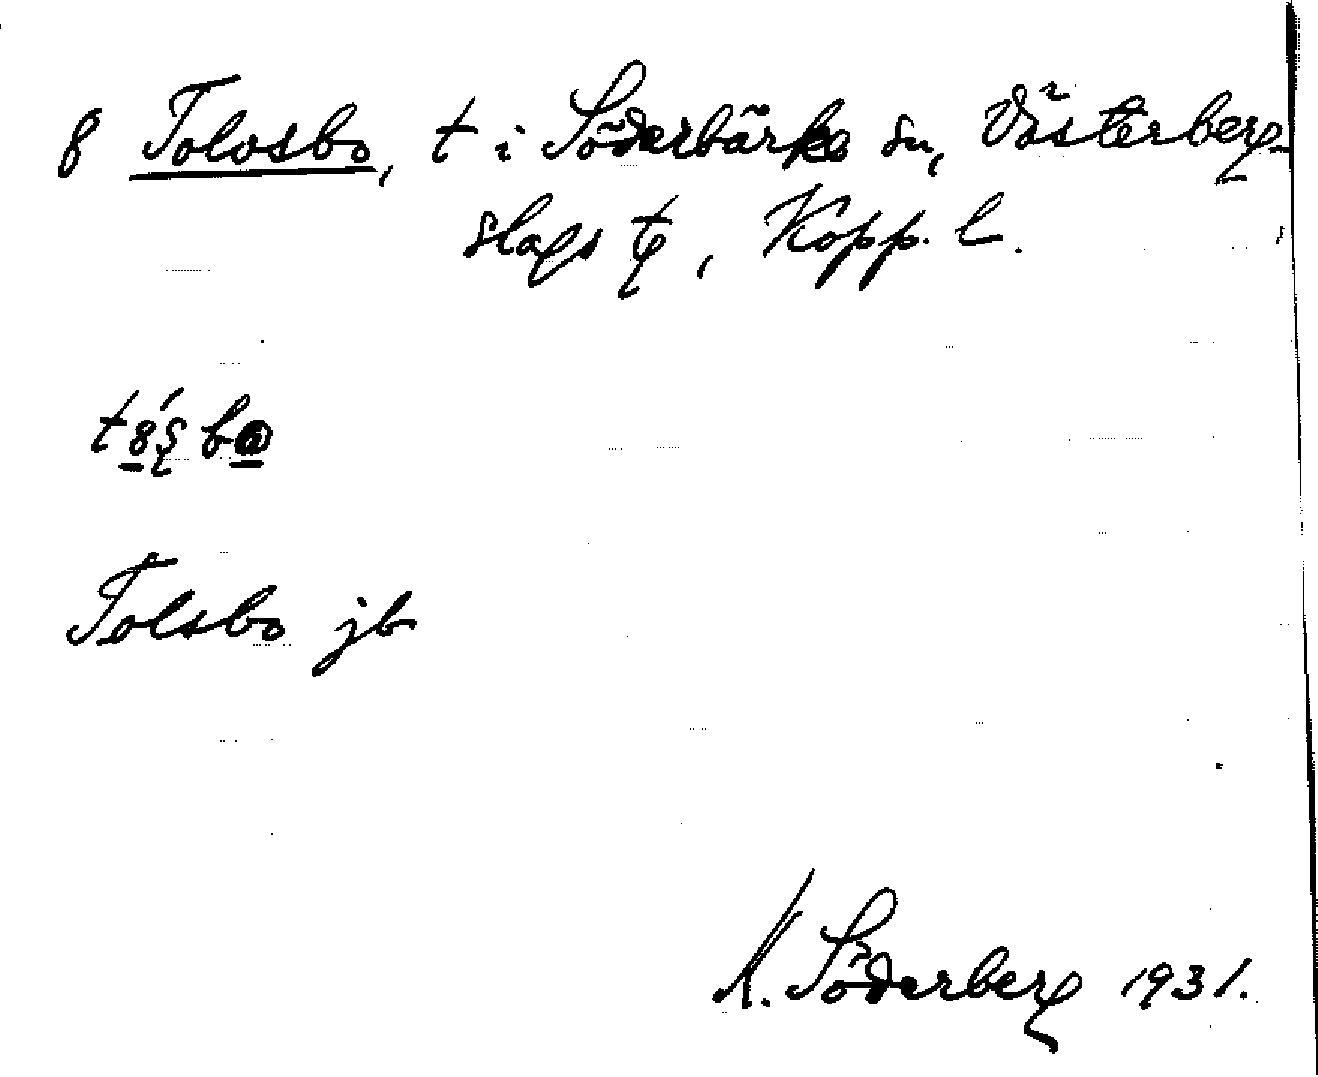 8 Tolvsbo, t i Söderbärke sn, Västerberg-
slags tg, Kopp. l.
Tolsbo jb
K. Söderberg 1931.